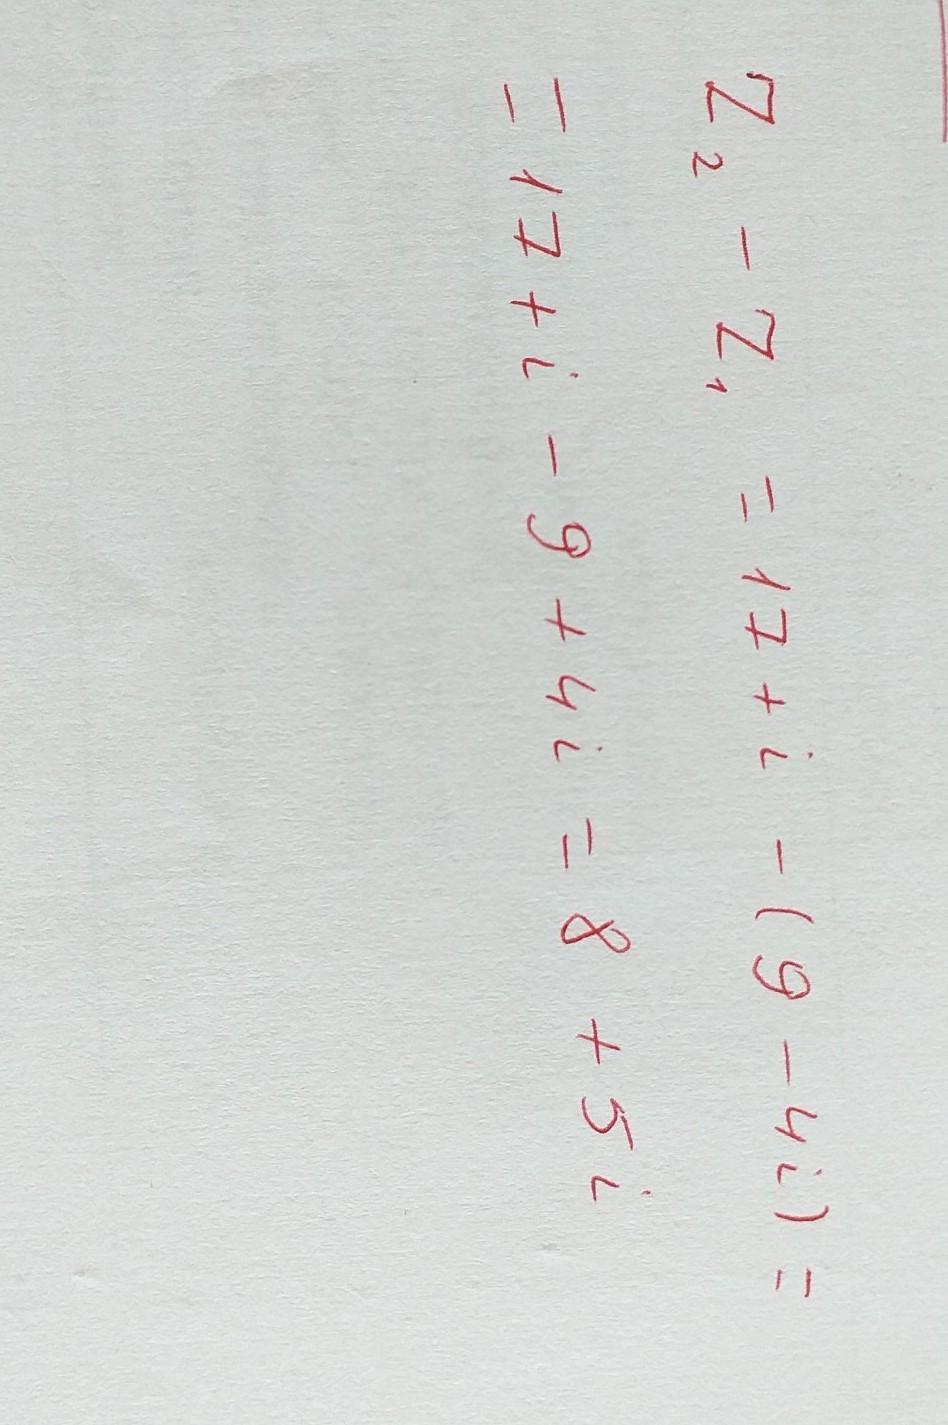 Z₂ - Z₁ = 17 + i - (9 - 4i) =
= 17 + i - 9 + 4i = 8 + 5i